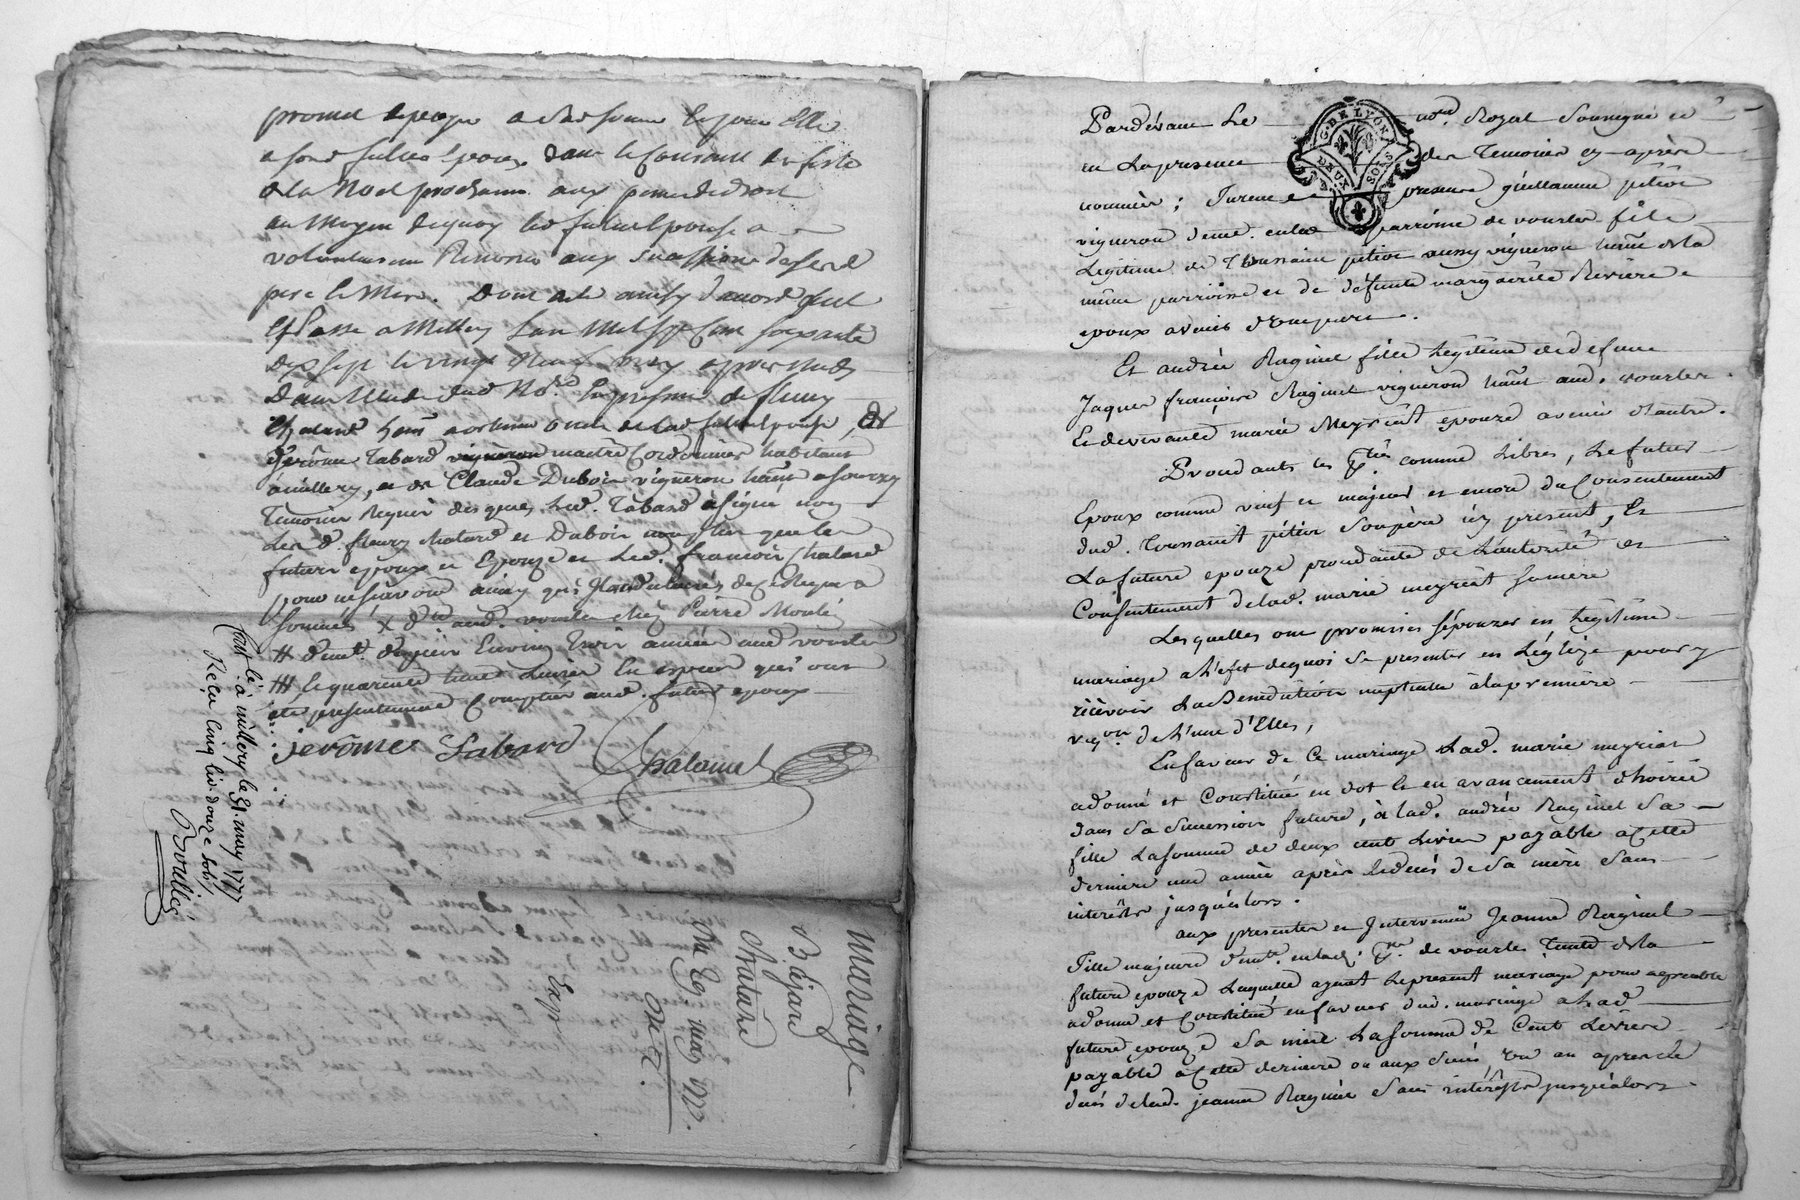 promet de payer
futurs Epoux dans le courant des festes
de la Noel prochaine aux peines de droit
au moyen de quoy lad. future Epouse a
volontairement Renoncé aux successions de sesd.
pere et Mere. Dont acte ainsy d'accord fait
Et Passé a Millery l'an Mil sept Cent soixante
dix sept le vingt Neuf may apres midy
Dans l'étude dud. No.re En presence de fleury
Chatard oncle de lad. future Epouse, de
Jérôme Tabard vigneron maitre Cordonnier habitant
a millery, et de Claude Dubois vigneron hant a
Temoins Requis desquels led. Tabard a signé non
les d. fleury chatard et Dubois non plus que les
futurs epoux et Epouze et led. francois Chatard
pour ne scavoir ainsy qu'ils l'ont déclaré, de ce Requis
sommés X dud. aud. vourles chez Pierre
# demt. depuis Environ trois années aud. vourles
### Et quarente neuf Livres En especes qui ont
été présentement Comptées aud. futur epoux
jerôme Tabard Chatanel
Cont.lé à millery le 31. may 1777
Reçu Cinq liv. douze sols
Mariage
Béjard
Chatard
Du 29 may 1777.
Exp.
Pardevant Le no.re Royal Soussigné et
en La presence des Temoins cy-après
nommés; furent presents guillaume petior
vigneron demt. en lad. parroisse de vourles fils
Légitime de Thoussaint petior aussy vigneron hant de la
même parroisse et de deffunte margueritte Rivière
epoux avenir d'une part.
Et andrée Raginel fille Légitime de defunt
Jaques françois Raginel vigneron hant aud. vourles
Et de vivante marie Meyriat epouze avenir d'autre.
Procedants les p.ties comme Libres, Le futur
Epoux comme veuf et majeur et encor du Consentement
dud. Toussaint pétior Son père icy present, Et
La future epouze procedante de L'autorité et
Consentement de lad. marie meyriat sa mère
Lesquelles ont promis s'épouzer en Légitime
mariage a L'efet de quoi se presenter en L'église pour y
recevoir La Benediction nuptialle à la première
req.on de L'une d'Elles,
En faveur de ce mariage Lad. marie meyriat
a donné et Constitué en dot et en avancement d'hoirie
dans Sa succession future, à lad. andrée Raginel Sa
fille La somme de deux cent Livres payable a Cette
derniere une année après Le deces de Sa mère Sans
interêts jusqu'alors.
aux presentes est Intervenüe Jeanne Raginel
Fille majeure demt. en lad. p.sse de vourles Tante de la
future epouze Laquelle ayant Le present mariage pour agreable
a donné et Constitué en faveur dud. mariage a Lad.
future epouze Sa niece La somme de Cent Livres
payable a Cette derniere ou aux Siens un an apres Le
deces de lad. jeanne Raginel Sans intérêts jusqu'alors.
G. DE LYON
DEUX SOLS